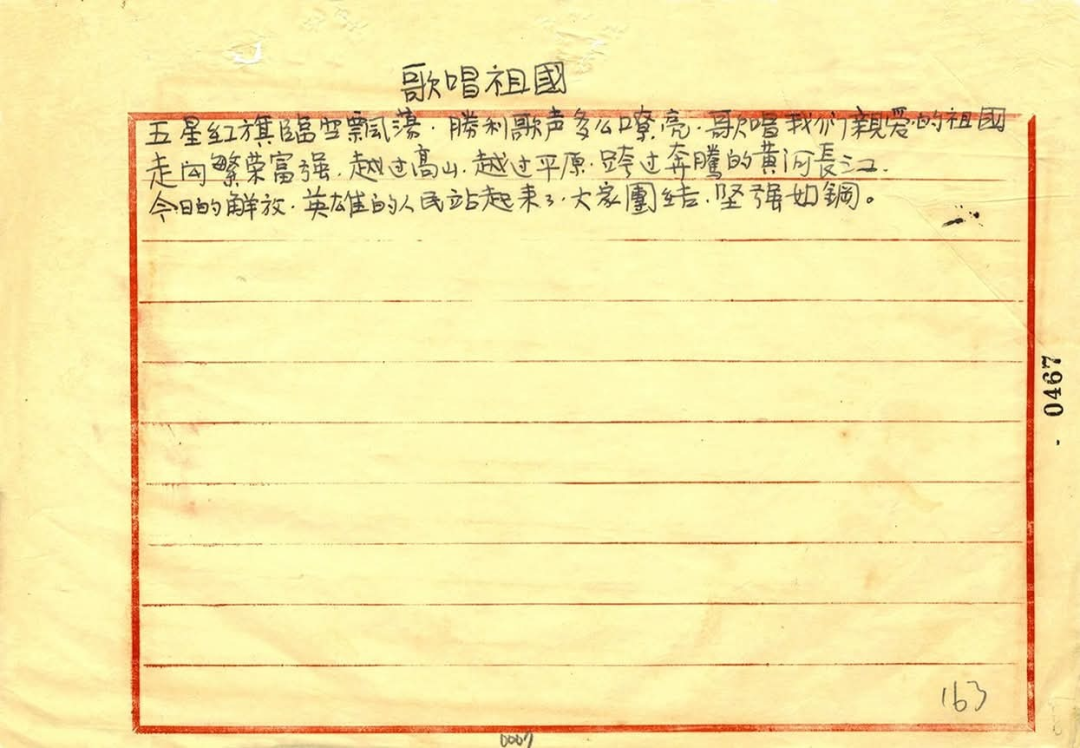 歌唱祖國
五星红旗臨空飘荡．勝利歌声多么嘹亮．歌唱我们親爱的祖國
走向繁荣富强．越过高山．越过平原．跨过奔騰的黄河長江．
今日的解放．英雄的人民站起来了．大家團結．坚强如鋼。
- 0467
163
0007